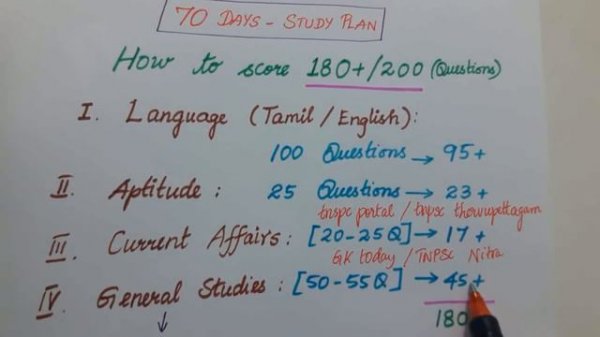 70 DAYS - STUDY PLAN
How to score 180+/200 (Questions)
I. Language (Tamil / English):
100 Questions → 95+
II. Aptitude : 25 Questions → 23+
tnspc portal / tnpsc thervupettagam
III. Current Affairs : [20-25Q] → 17+
GK today / TNPSC Nitra
IV. General Studies : [50-55Q] → 45+
180